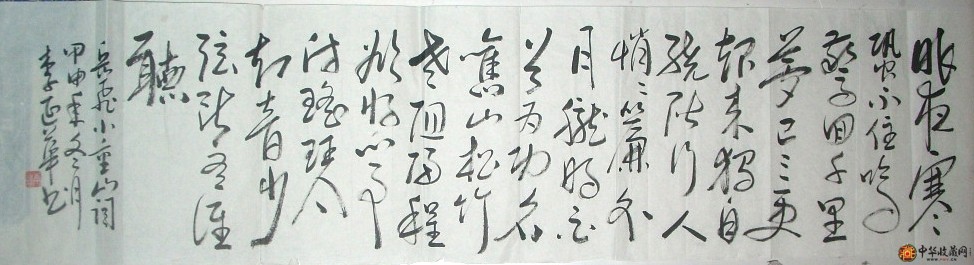 昨夜寒
蛩不住鸣
惊回千里
梦已三更
起来独自
绕阶行人
悄悄簾外
月朧明白
首为功名
舊山松竹
老阻归程
欲将心事
付瑶琴
知音少
弦断有谁
聽
岳飛小重山词
甲申年冬月
李延華书
中华收藏网